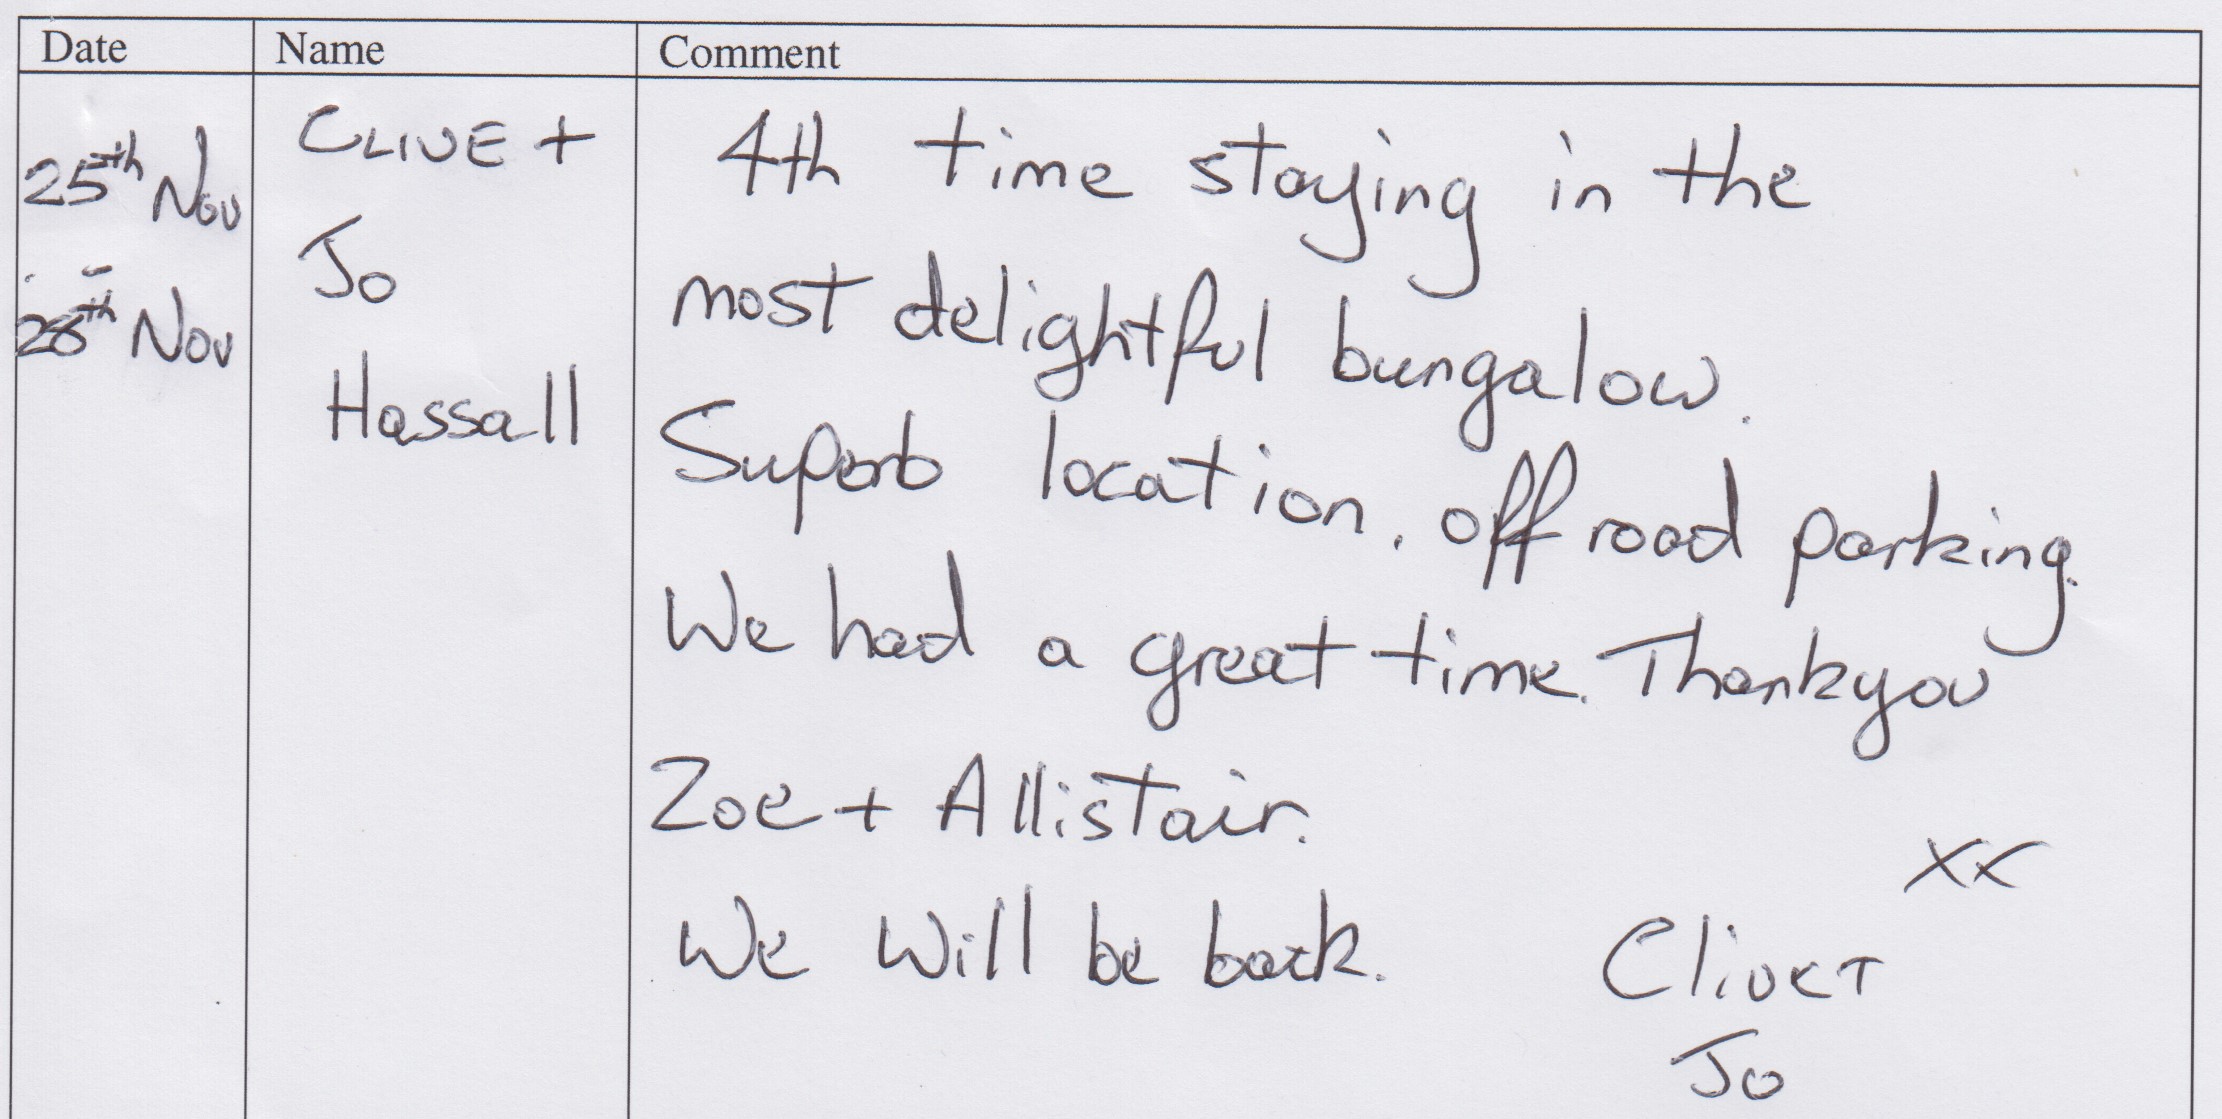 Date Name Comment
25th Nov
-
28th Nov
CLIVE +
Jo
Hassall
4th time staying in the
most delightful bungalow.
Superb location, off road parking.
We had a great time. Thankyou
Zoe + Allistair.
We will be back.
xx
Clive +
Jo